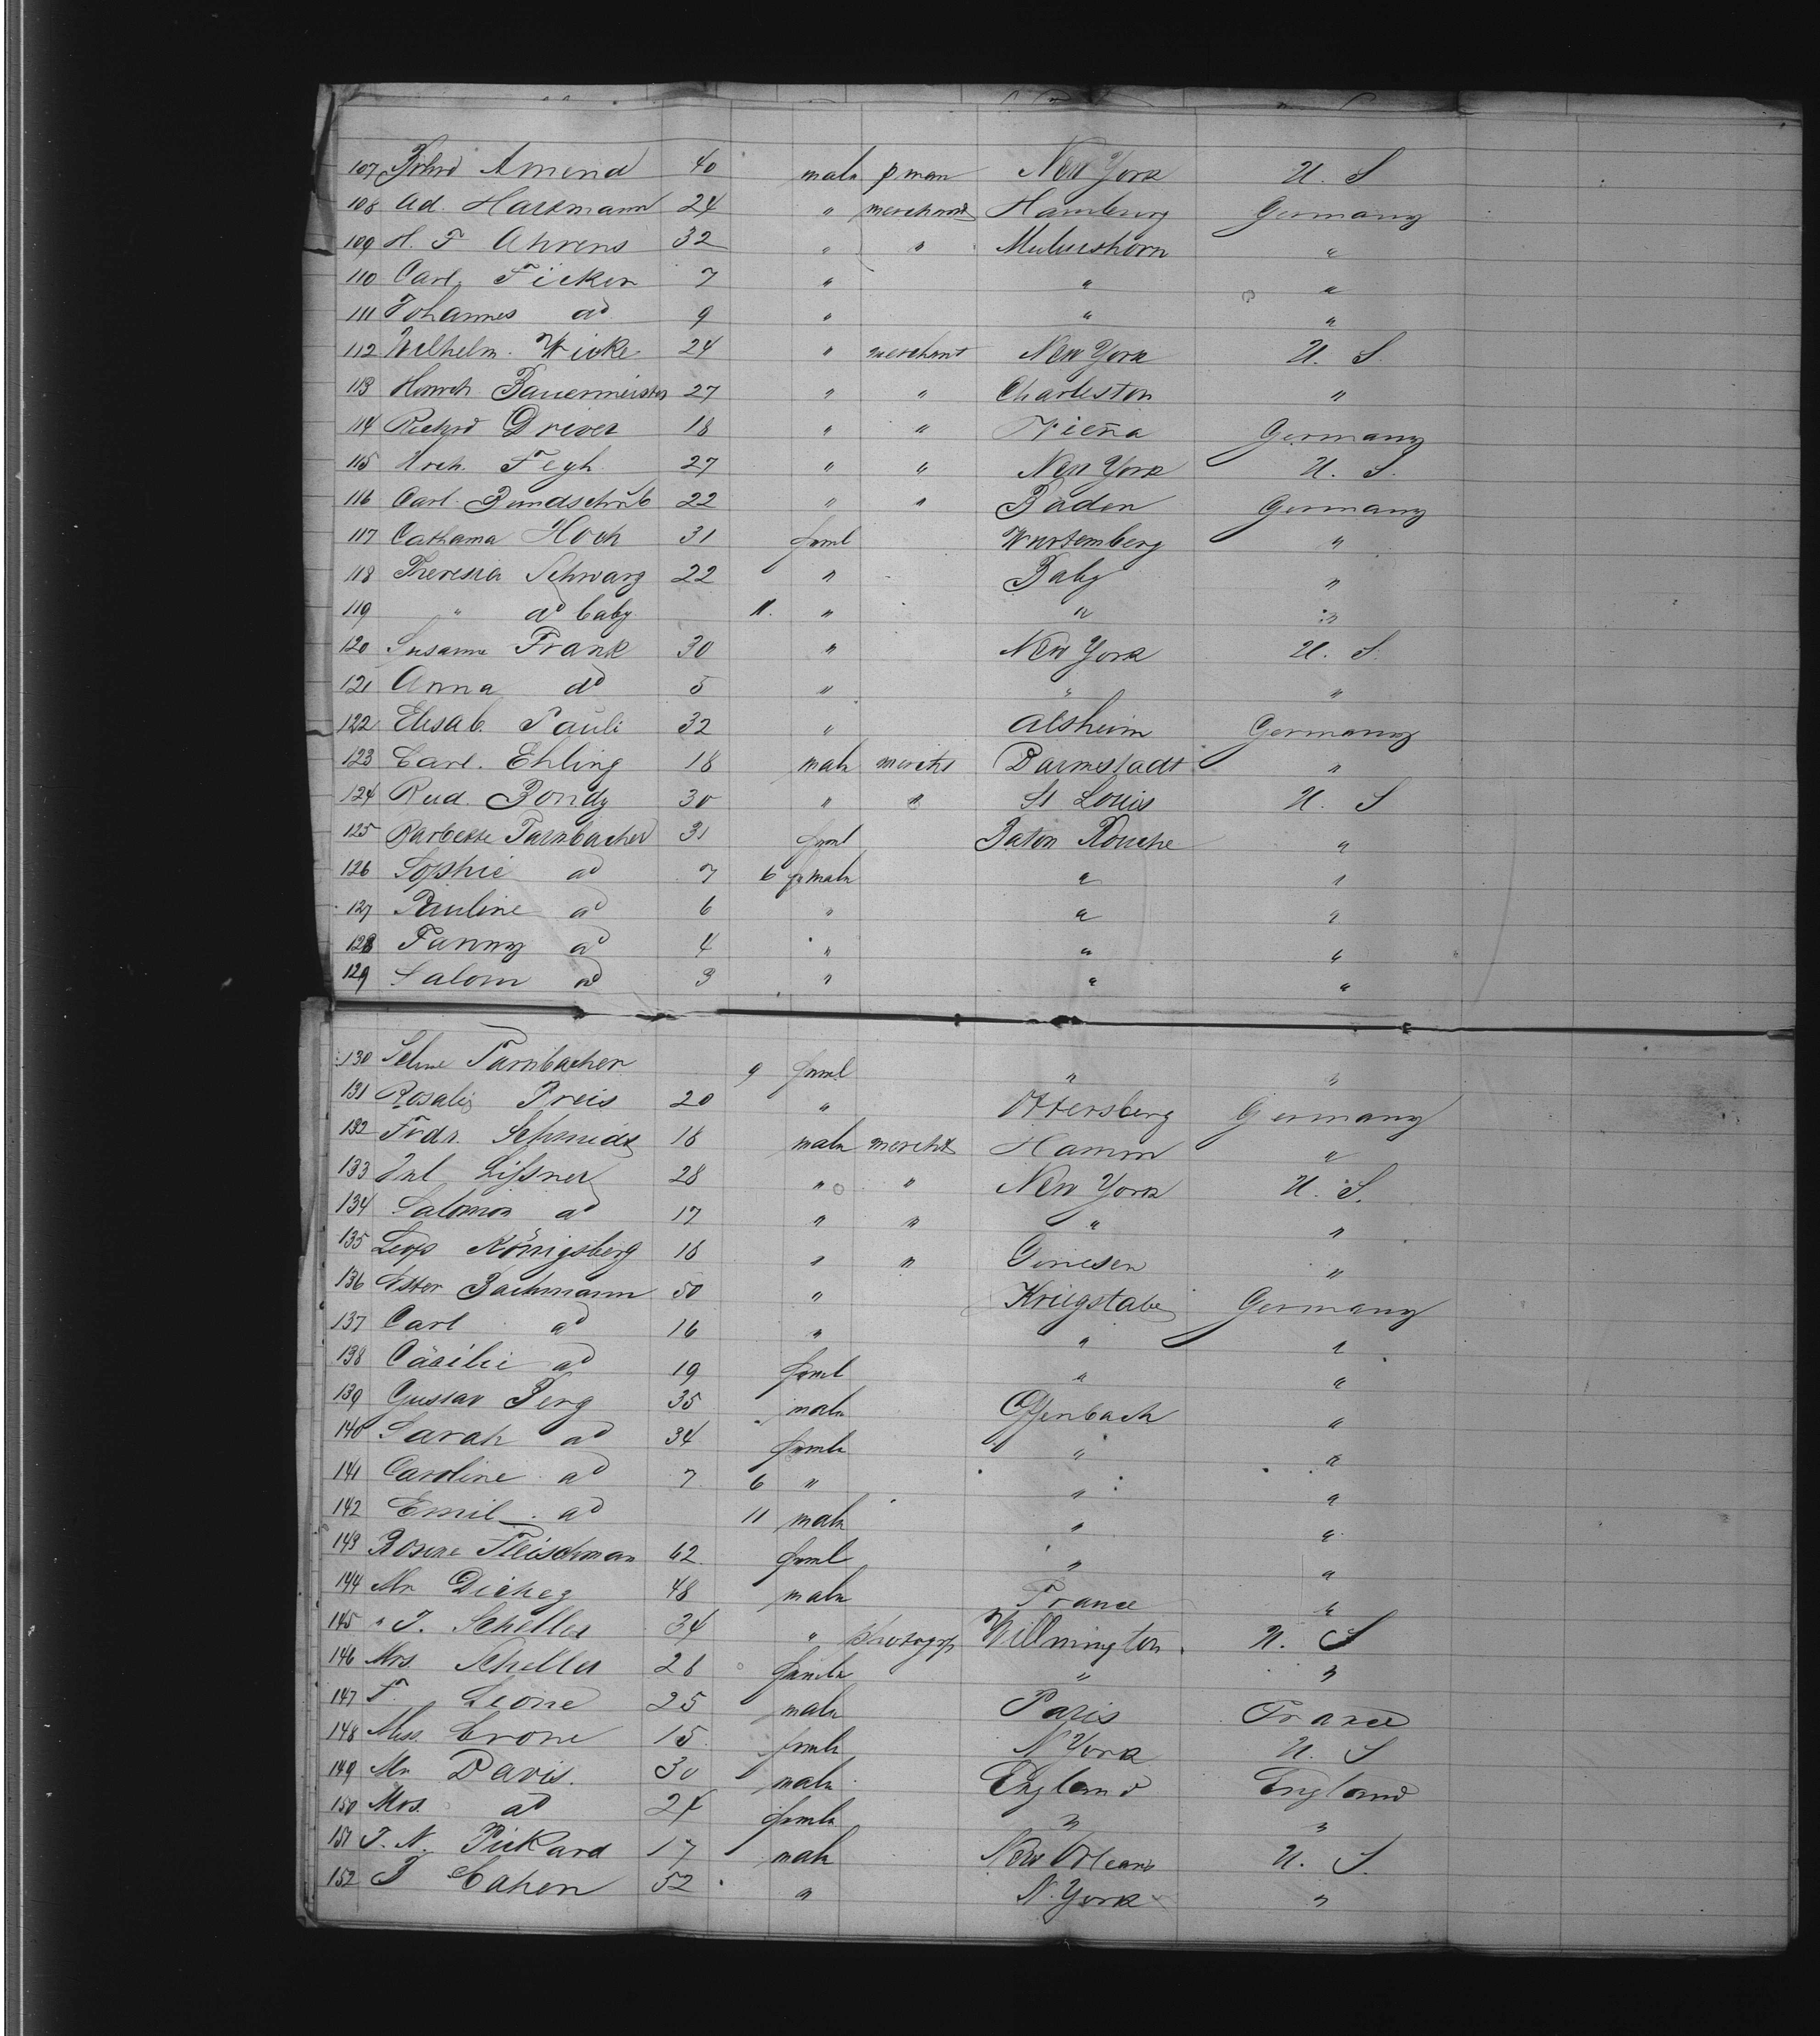 107 Brhrd Amend 40 male p man New York U. S
108 Ad. Harkmann 24 " merchandt Hamburg Germany
109 H. F Ahrens 32 " " Mulmshorn "
110 Carl Ficken 7 " " "
111 Johannes do 9 " " "
112 Wilhelm. Wicke 24 " merchant New York U. S.
113 Hinrch Bauermeister 27 " " Charleston "
114 Richrd Driver 18 " " Viena Germany
115 Hrch. Fegh. 27 " " New York U. S.
116 Carl. Bundschub 22 " " Baden Germany
117 Catharna Hoch 31 feml Wurtemberg "
118 Theresia Schwarz 22 " Baby "
119 " do baby 11. " " "
120 Susanne Frank 30 " New York U. S.
121 Anna do 5 " " "
122 Elisab. Pauli 32 " Alsheim Germany
123 Carl. Ehling 18 male mercht Darmstadt "
124 Rud. Bondy 30 " " St Louis U. S
125 Barbette Farnbacher 31 feml Baton Rouche "
126 Sophie do 7 6 female " "
127 Pauline do 6 " " "
128 Fanny do 4 " " "
129 Salom do 3 " " "
130 Selme Farnbacher 9 feml " "
131 Rosalie Preis 20 " Ottersberg Germany
132 Frdr. Schmidt 18 male mercht Hamm "
133 Jul Lissner 28 " " New York U. S.
134 Salomon do 17 " " " "
135 Leop Königsberg 18 " " "
136 Bachmann 50 " Germany
137 Carl do 16 " " "
138 Cäcilie do 19 feml " "
139 Gustav Berg 35 male Offenbach "
140 Sarah do 34 femle " "
141 Caroline do 7 6 " " "
142 Emil do 11 male " "
143 Rosine Fleischman 62 feml " "
144 Mr Dichez 48 male France "
145 " J. Scheller 34 " Willmington U. S
146 Mrs. Scheller 28 femle " "
147 F. Leone 25 male Paris France
148 Miss. Crone 15 femle N York U. S
149 Mr Davis. 30 male England England
150 Mrs. do 24 femle " "
151 J. N. Pickard 17 male New Orleans U. S.
152 J Cahen 52 " N. York "